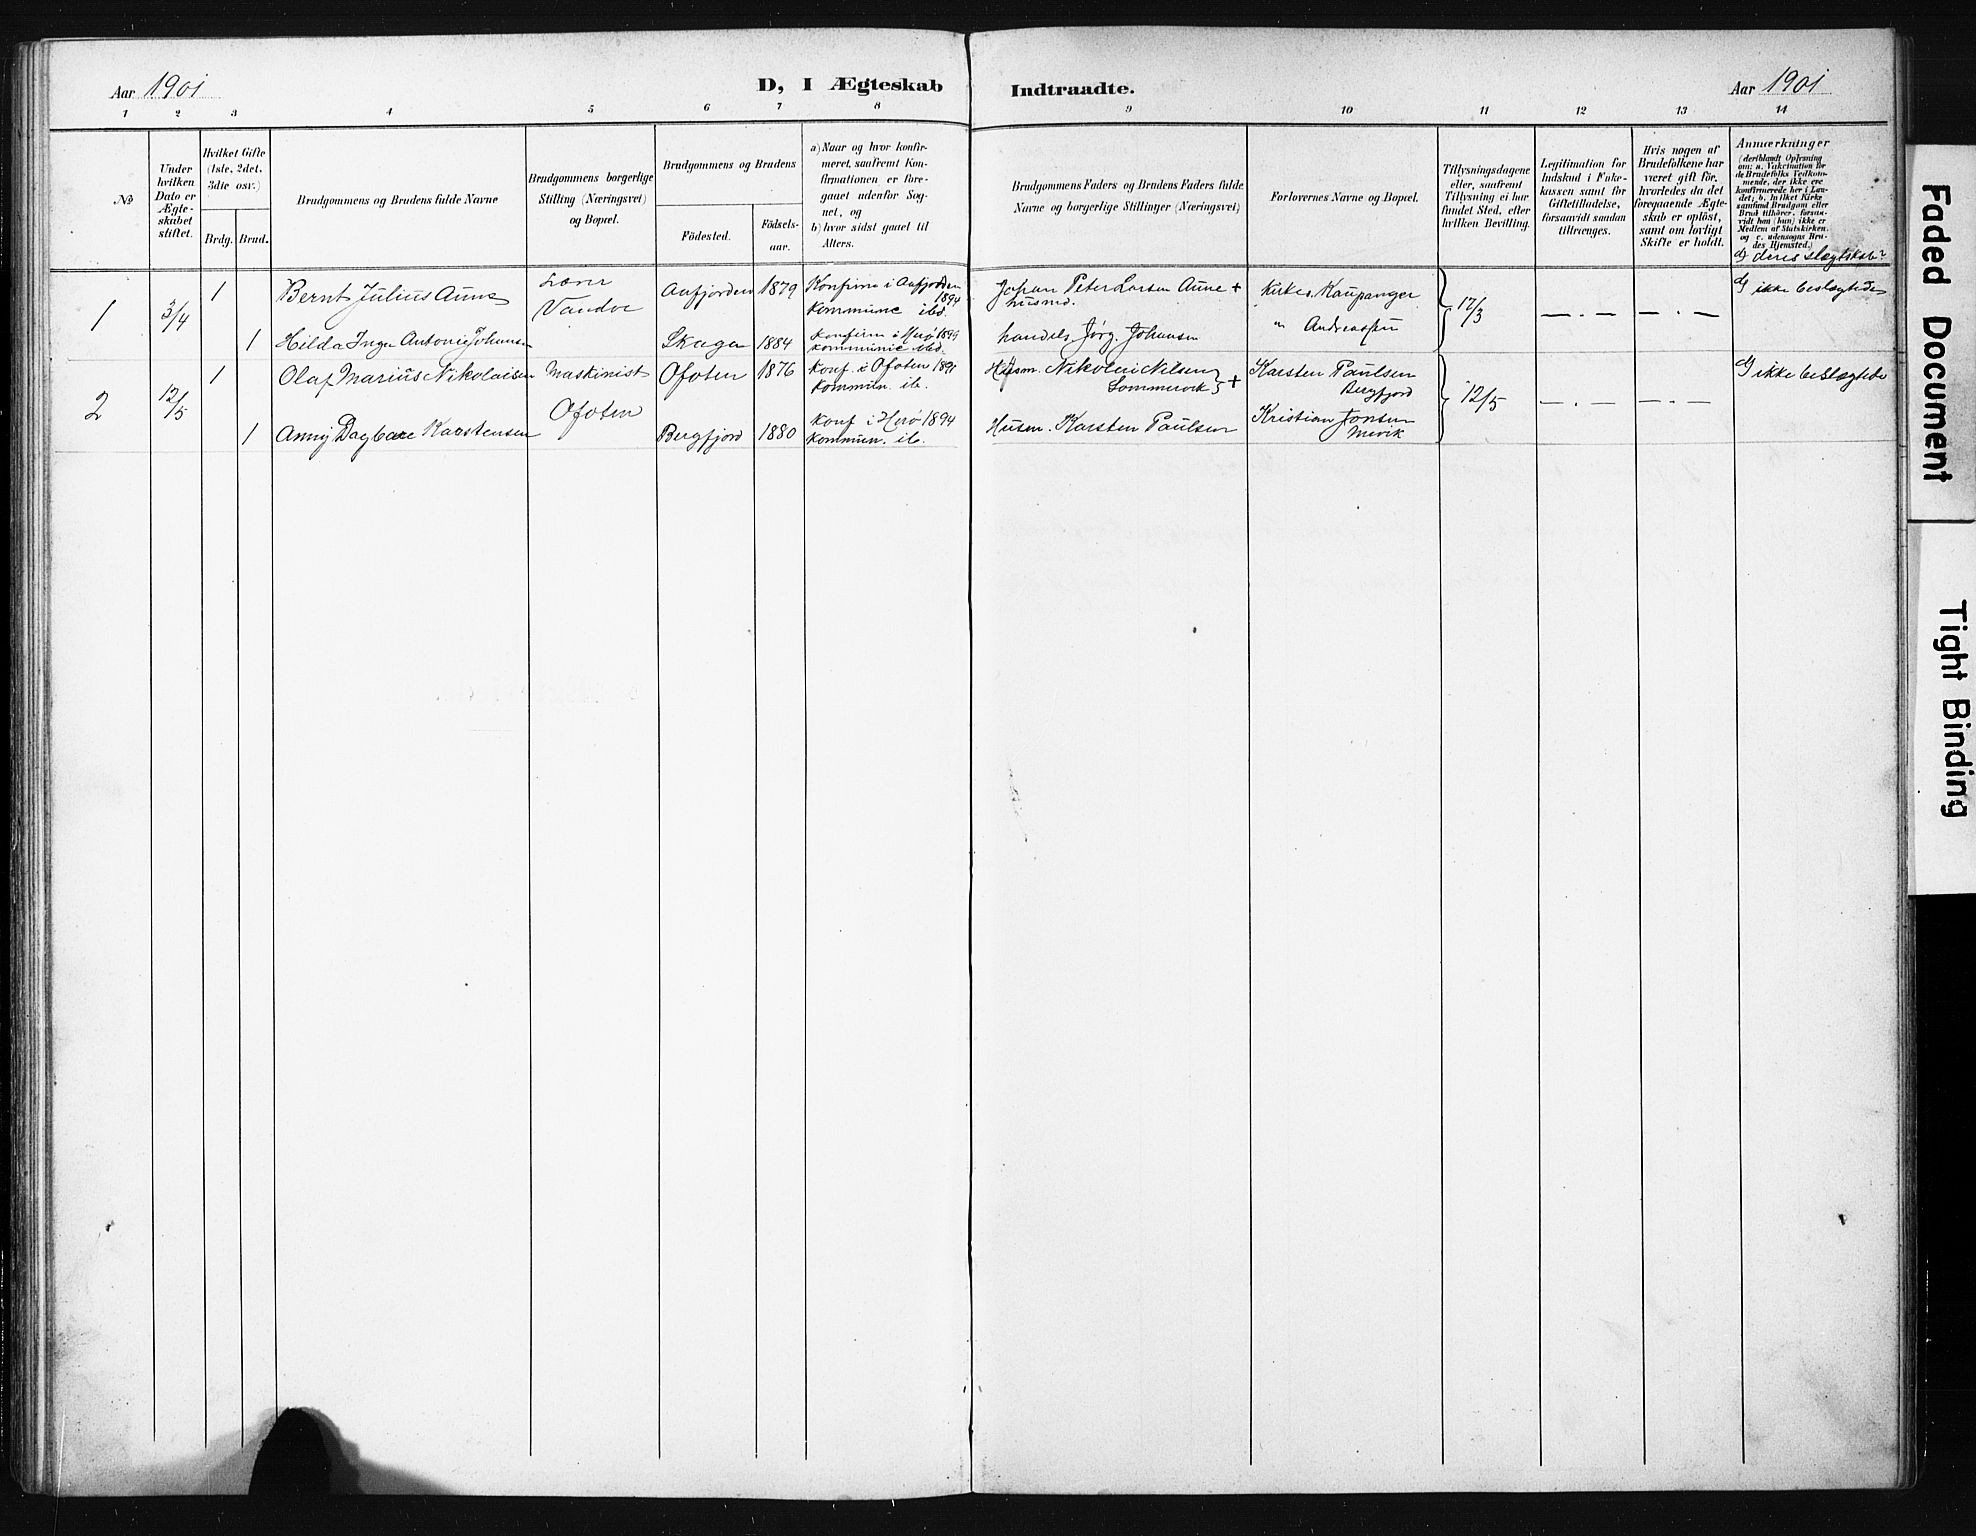 Aar 1901
D, I Ægteskab Indtraadte.
Aar 1901
1 2 3 4 5 6 7 8 9 10 11 12 13 14
№
Under
hvilken
Dato er
Ægte-
skabet
stiftet.
Hvilket Gifte
(1ste, 2det,
3die osv.)
Brdg. Brud.
Brudgommens og Brudens fulde Navne
Brudgommens borgerlige
Stilling (Næringsvei)
og Bopæl.
Brudgommens og Brudens
Födested.
Födsels-
aar.
a) Naar og hvor konfir-
meret, saafremt Kon-
firmationen er fore-
gaaet udenfor Sog-
net, og
b) hvor sidst gaaet til
Alters.
Brudgommens Faders og Brudens Faders fulde
Navne og borgerlige Stillinger (Næringsvei)
Forlovernes Navne og Bopæl.
Tillysningsdagene
eller, saafremt
Tillysning ei har
fundet Sted, efter
hvilken Bevilling.
Legitimation for
Indskud i Enke-
kassen samt for
Giftetilladelse,
forsaavidt saadan
tiltrænges.
Hvis nogen af
Brudefolkene har
været gift før,
hvorledes da det
foregaaende Ægte-
skab er opløst,
samt om lovligt
Skifte er holdt.
Anmærkninger
(deriblandt Oplysning
om: a. Vakcination for
de Brudefolks Vedkom-
mende, der ikke ere
konfirmerede her i Lan-
det; b. hvilket Kirke
samfund Brudgom eller
Brud tilhører, forsaa-
vidt han (hun) ikke er
Medlem af Statskirken.
og c. udensogns Bru-
des Hjemsted.)
d) deres slægtskab?
1 3/4 1 Bernt Julius Aune
Vandve
Aafjorden 1879
Konfirm i Aafjorden
1894
kommunic ibd.
Johan Peter Larsen Aune +
husmd.
Kirkes. Kaupanger
17/3
— . — — . —
d) ikke beslægtede
1 Hilda Inga Antonie Johansen
Skaga 1884
konfirm i Herø 1899
kommunic ibid.
handels Jörg. Johansen
" Andreassen
2 12/5 1 Olaf Marius Nikolaisen
Maskinist
Ofoten
Ofoten 1876
Konf. i Ofoten 1891
Kommun. ib.
Husm. Nikolai Nilsen
Sommervik +
Karsten Paulsen
Bergfjord
12/5
— . — — . —
d) ikke beslægtede
1 Anny Dagbare Karstensen
Bergfjord 1880
Konf i Herø 1894
kommun. ib.
Husm. Karsten Paulsen
Kristian Jonsen
Mevik
Faded Document
Tight Binding